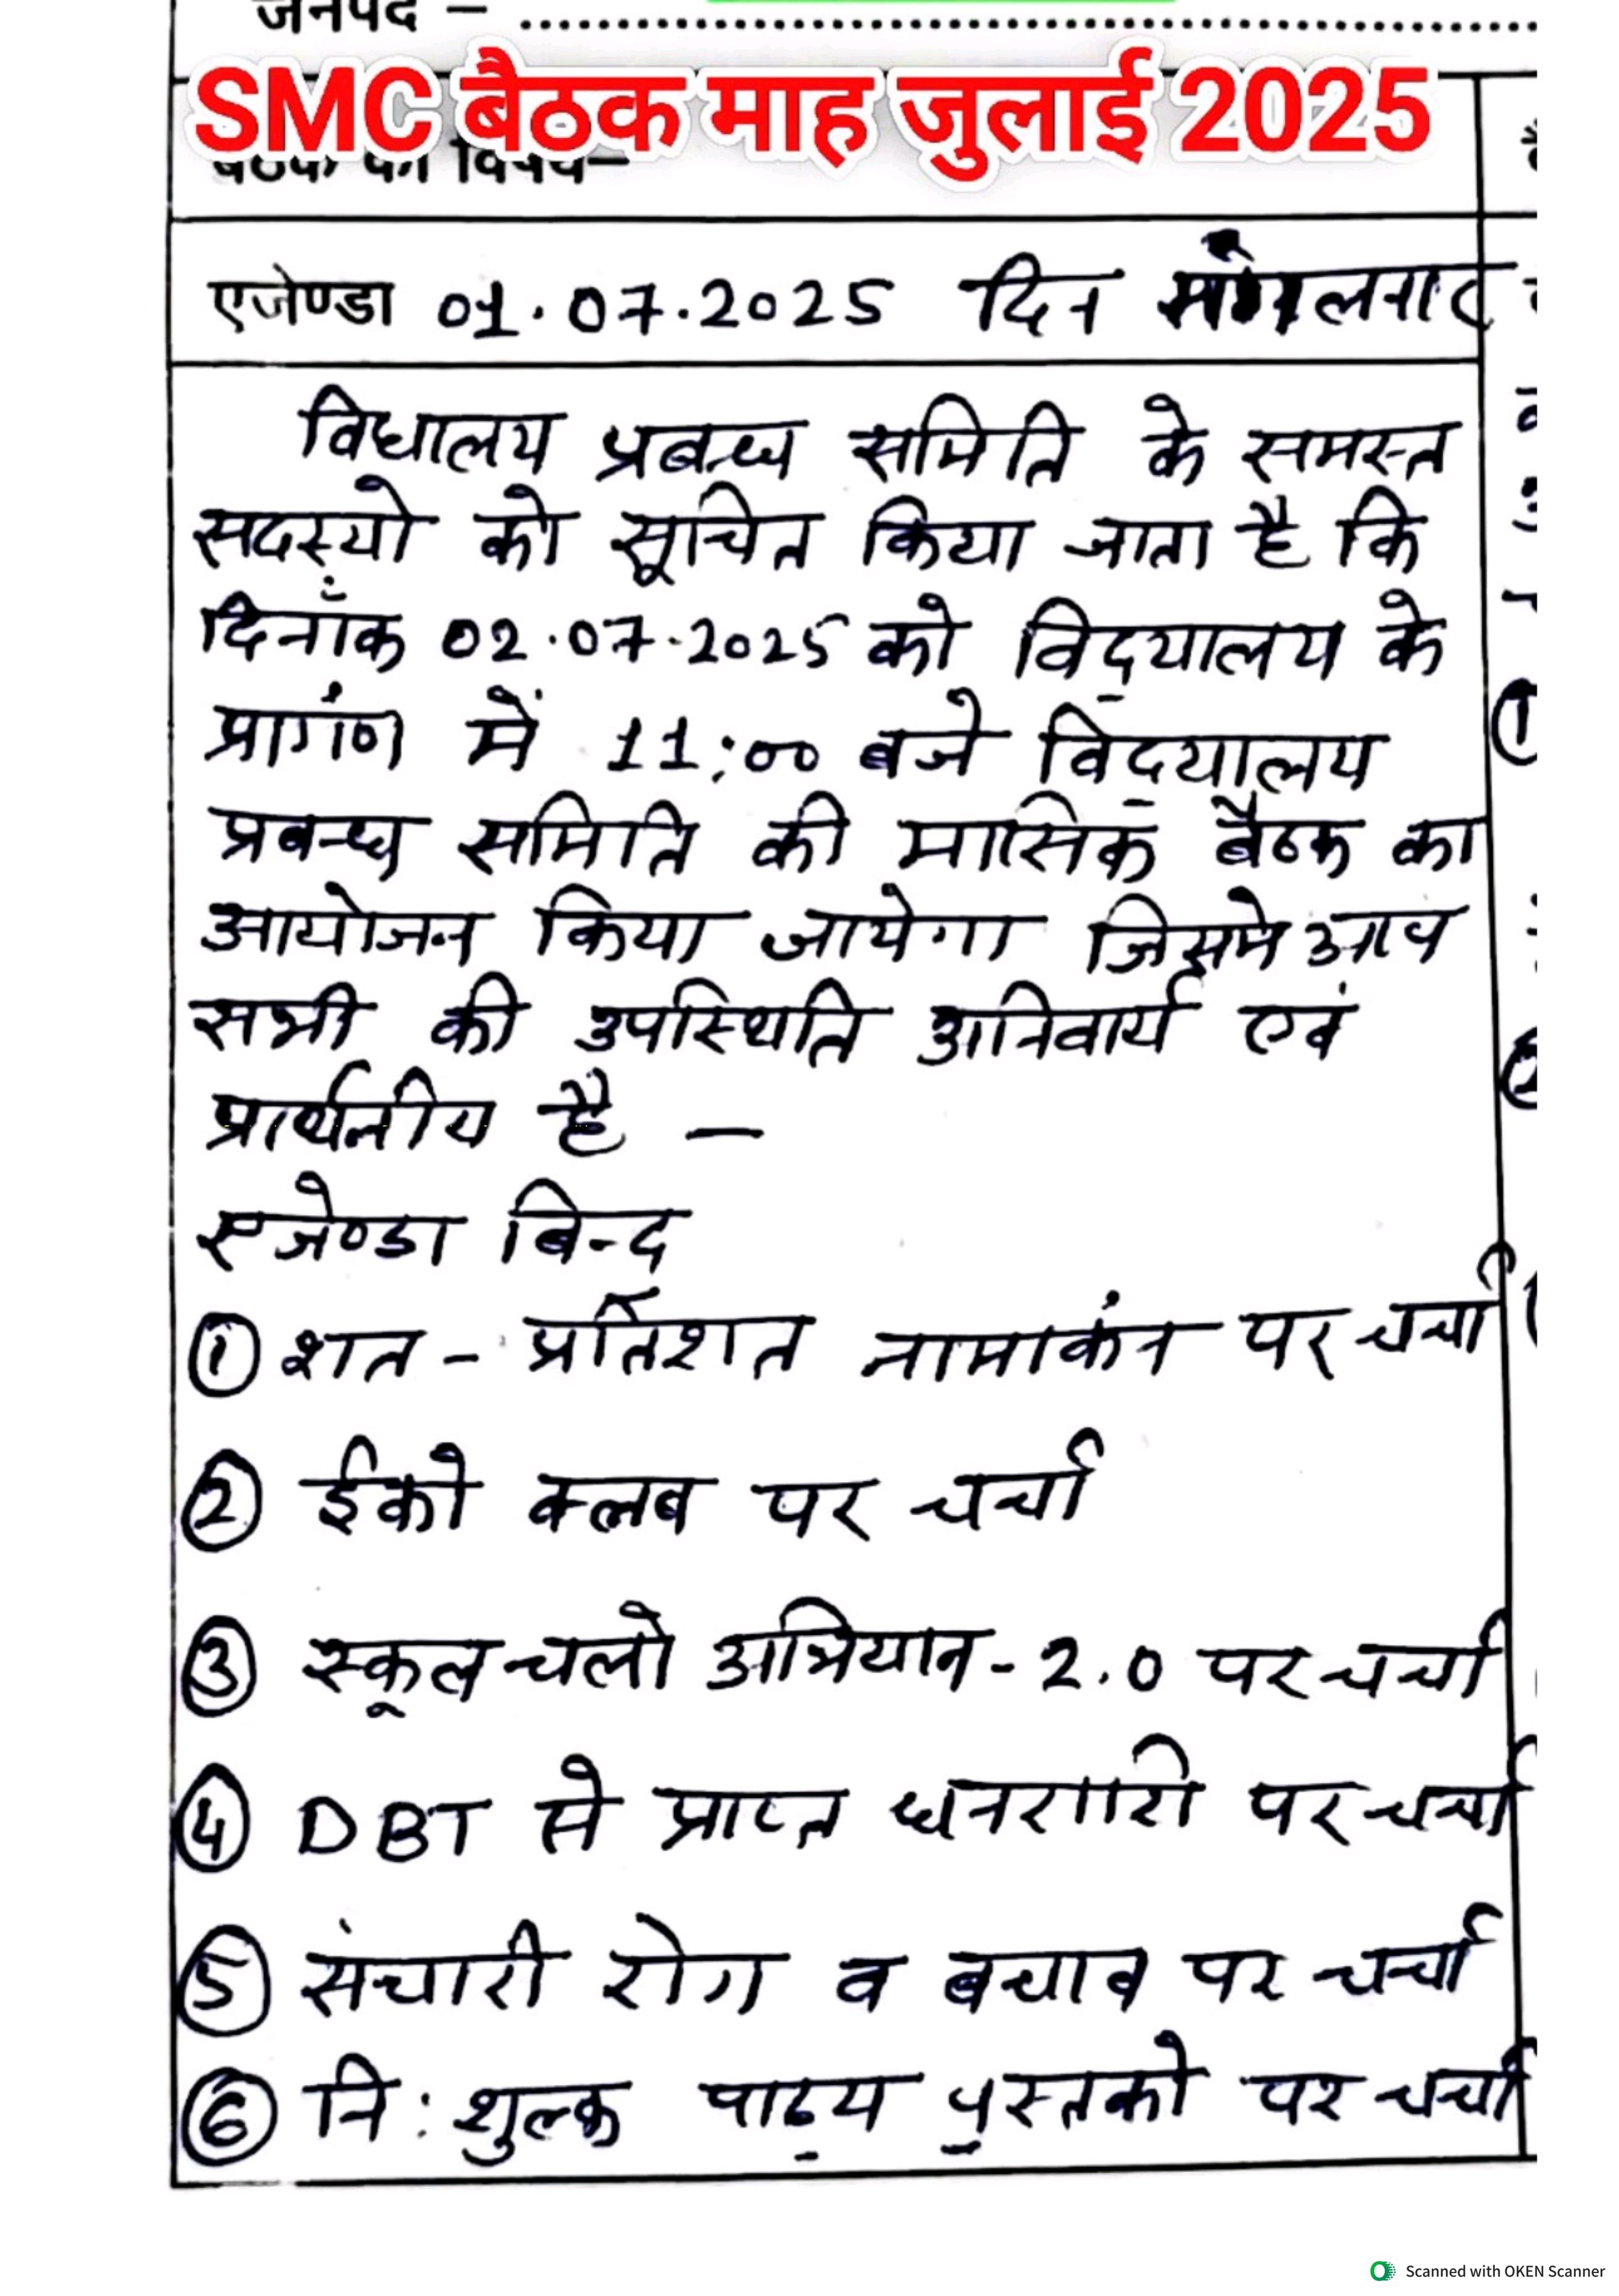 जनपद – ........................................
SMC बैठक माह जुलाई 2025
बैठक का विषय–
एजेण्डा 01.07.2025 दिन मंगलवार
विद्यालय प्रबन्ध समिति के समस्त
सदस्यो को सूचित किया जाता है कि
दिनाँक 02.07.2025 को विद्यालय के
प्रागंण में 11:00 बजे विद्यालय
प्रबन्ध समिति की मासिक बैठक का
आयोजन किया जायेगा जिसमे आप
सभी की उपस्थिति अनिवार्य एवं
प्रार्थनीय है –
एजेण्डा बिन्द
① शत - प्रतिशत नामाकंन पर चर्चा
② ईको क्लब पर चर्चा
③ स्कूल चलो अभियान - 2.0 पर चर्चा
④ DBT से प्राप्त धनराशि पर चर्चा
⑤ संचारी रोग व बचाव पर चर्चा
⑥ नि:शुल्क पाठ्य पुस्तको पर चर्चा
Scanned with OKEN Scanner